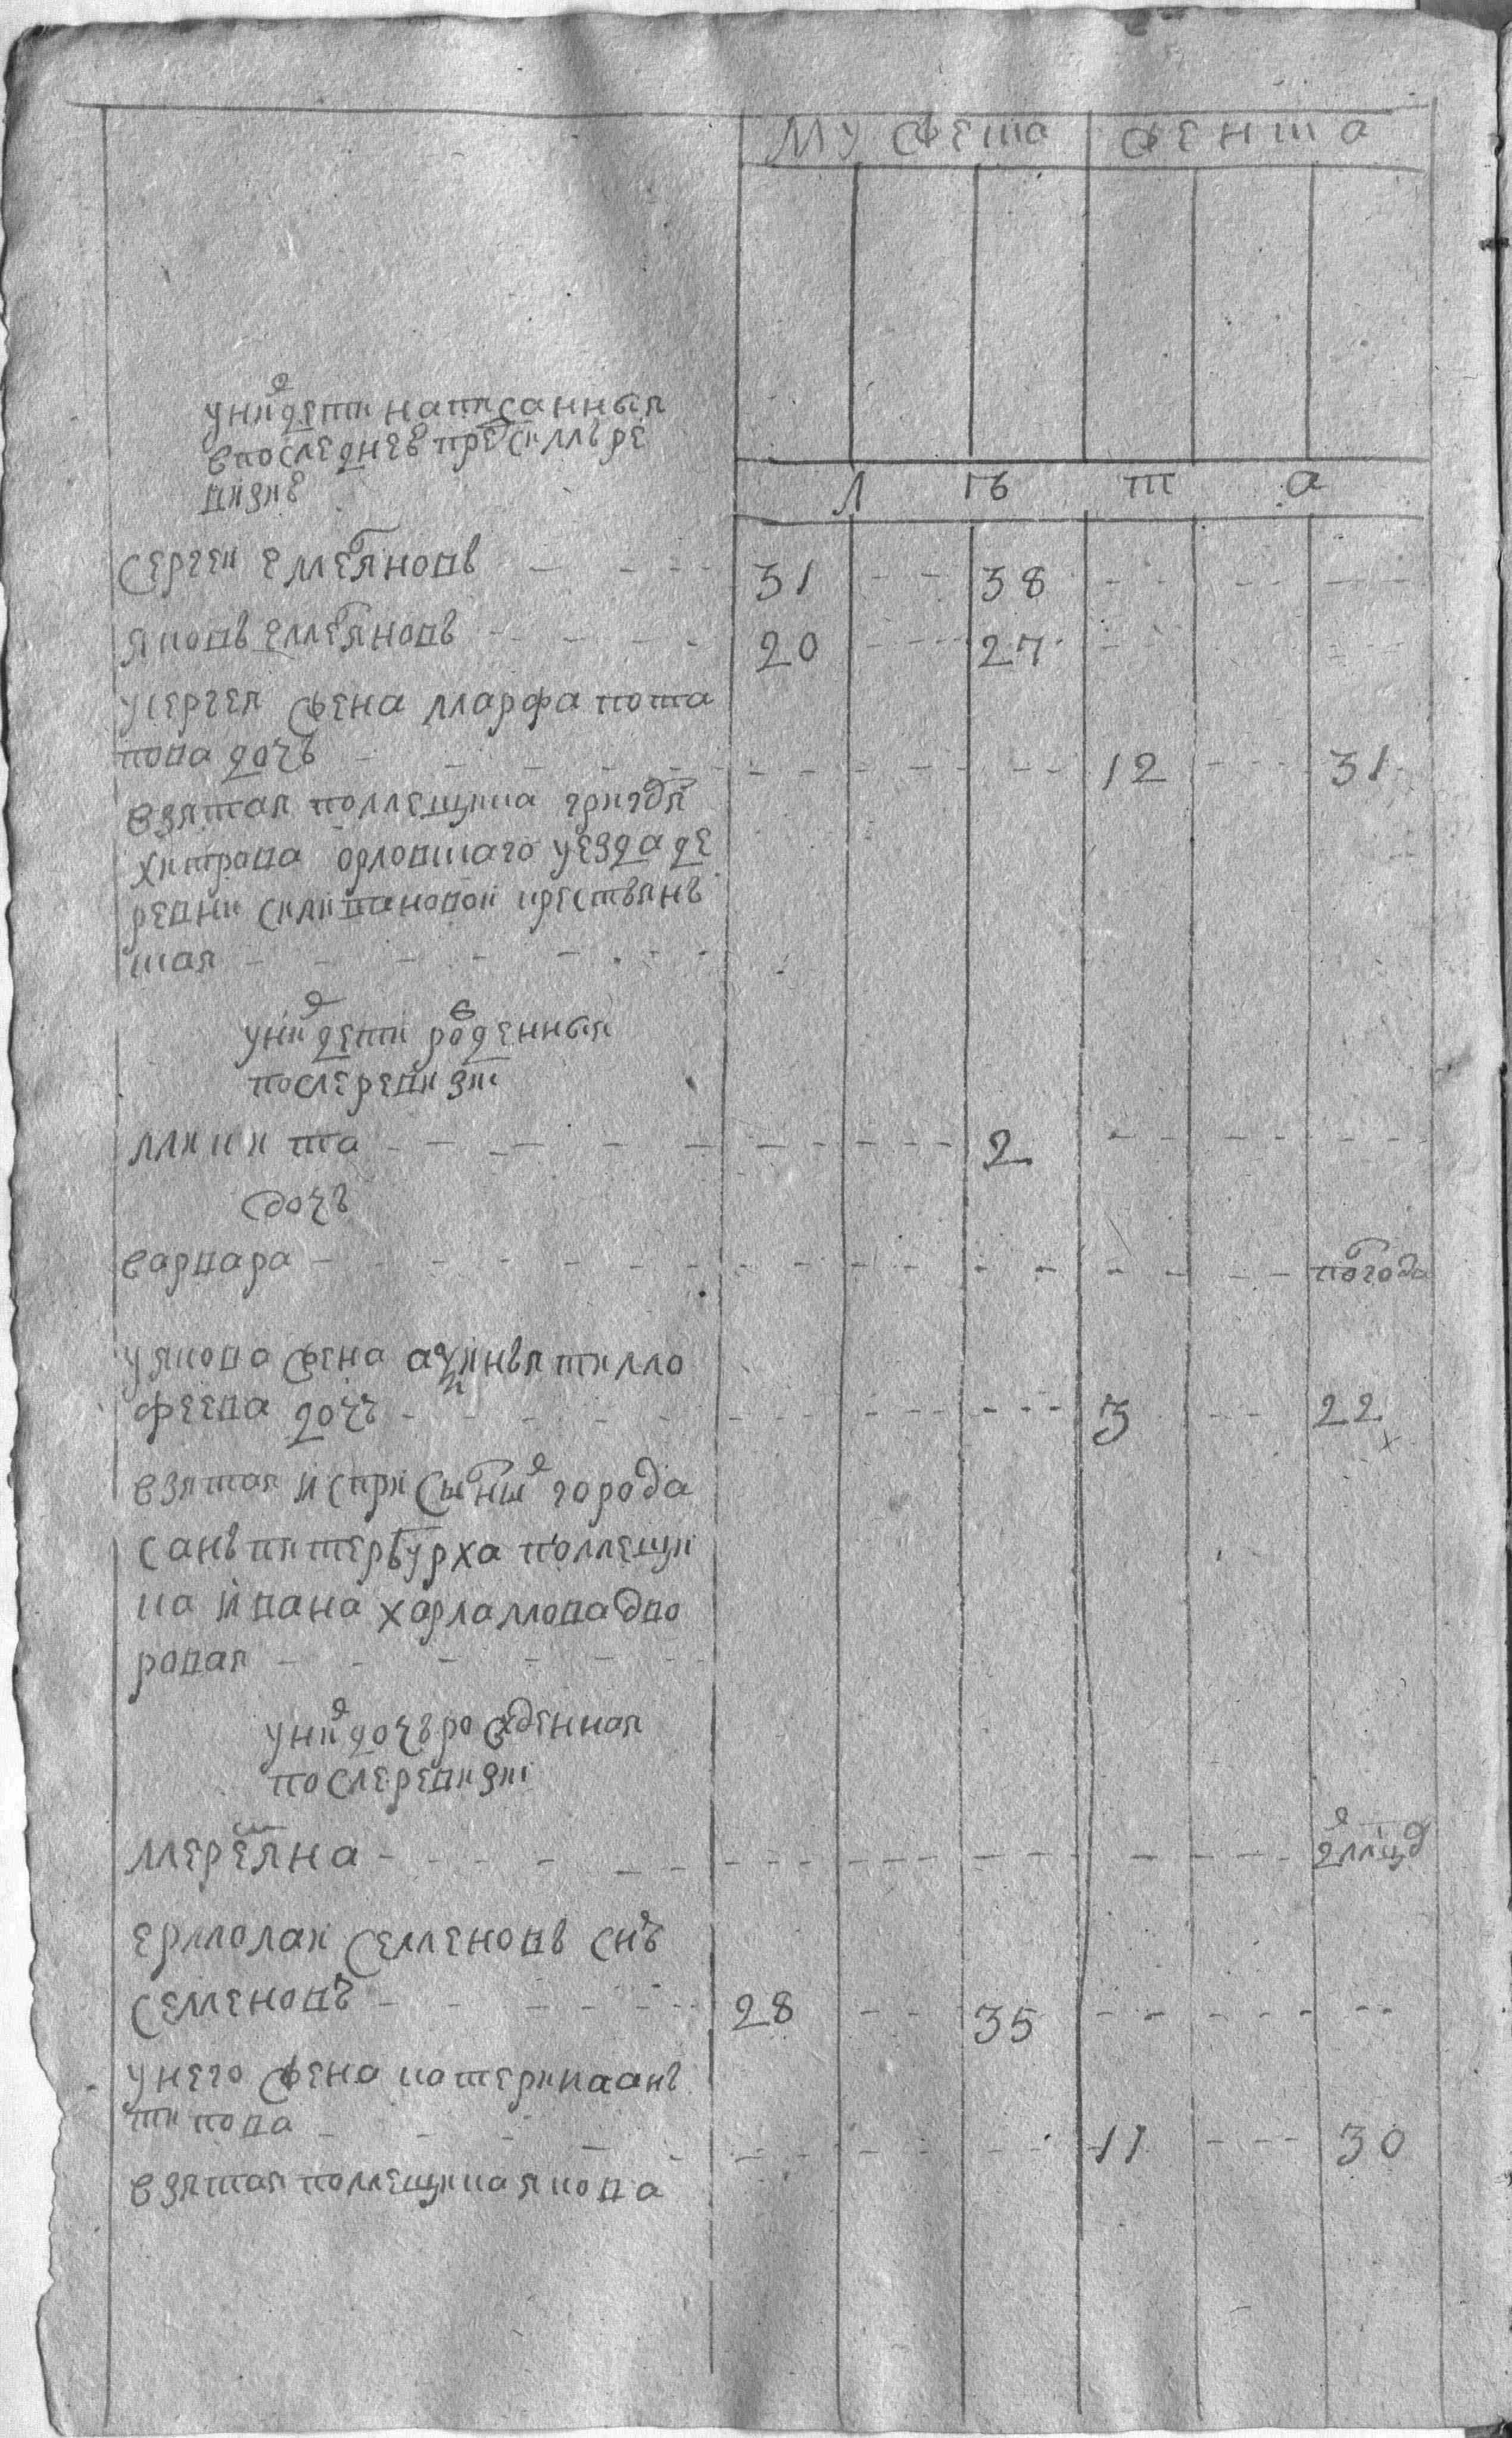 мужеска женска
у них дети написанныя
в последней пред сим ре
визиї
л ѣ т а
сергей емельяновъ 31 38
яковъ емельяновъ 20 27
у сергея жена марфа пота
пова дочь 12 31
взятая помещика григорья
хитрова орловскаго уезда де
ревни селихановой крестьянъ
ская
у них дети рожденныя
после ревизиї
микита 2
дочь
варвара полгода
у якова жена аксинья тимо
феева дочь 3 22
взятая ис присыльных города
санкъ питербурха помещи
ка ивана харламова дво
ровая
у них дочь рожденная
после ревизиї
меремьяна 2 мцд
ермолай семеновъ снъ
семеновъ 28 35
у него жена катерина ань
типова 11 30
взятая помещика якова